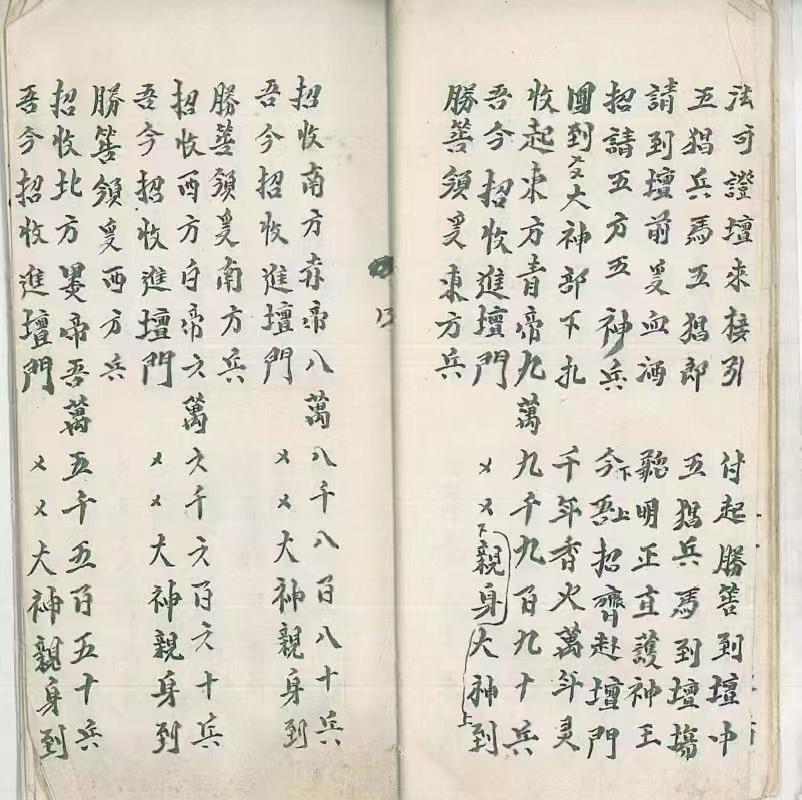 法可證壇來接引 付起勝善到壇中
五猖兵馬五猖郎 五猖兵馬到壇塲
請到壇前受血酒 聽明正直護神王
招請五方五神兵 今下吾上招齊赴壇門
團到㐅㐅大神部下扎 千年香火萬年灵
收起東方青帝九萬九千九百九十兵
吾今招收進壇門 㐅㐅下親身大神到上
勝善領受東方兵
13
招收南方赤帝八萬八千八百八十兵
吾今招收進壇門 㐅㐅大神親身到
勝善領受南方兵
招收西方白帝六萬六千六百六十兵
吾今招收進壇門 㐅㐅大神親身到
勝善領受西方兵
招收北方黑帝吾萬五千五百五十兵
吾今招收進壇門 㐅㐅大神親身到